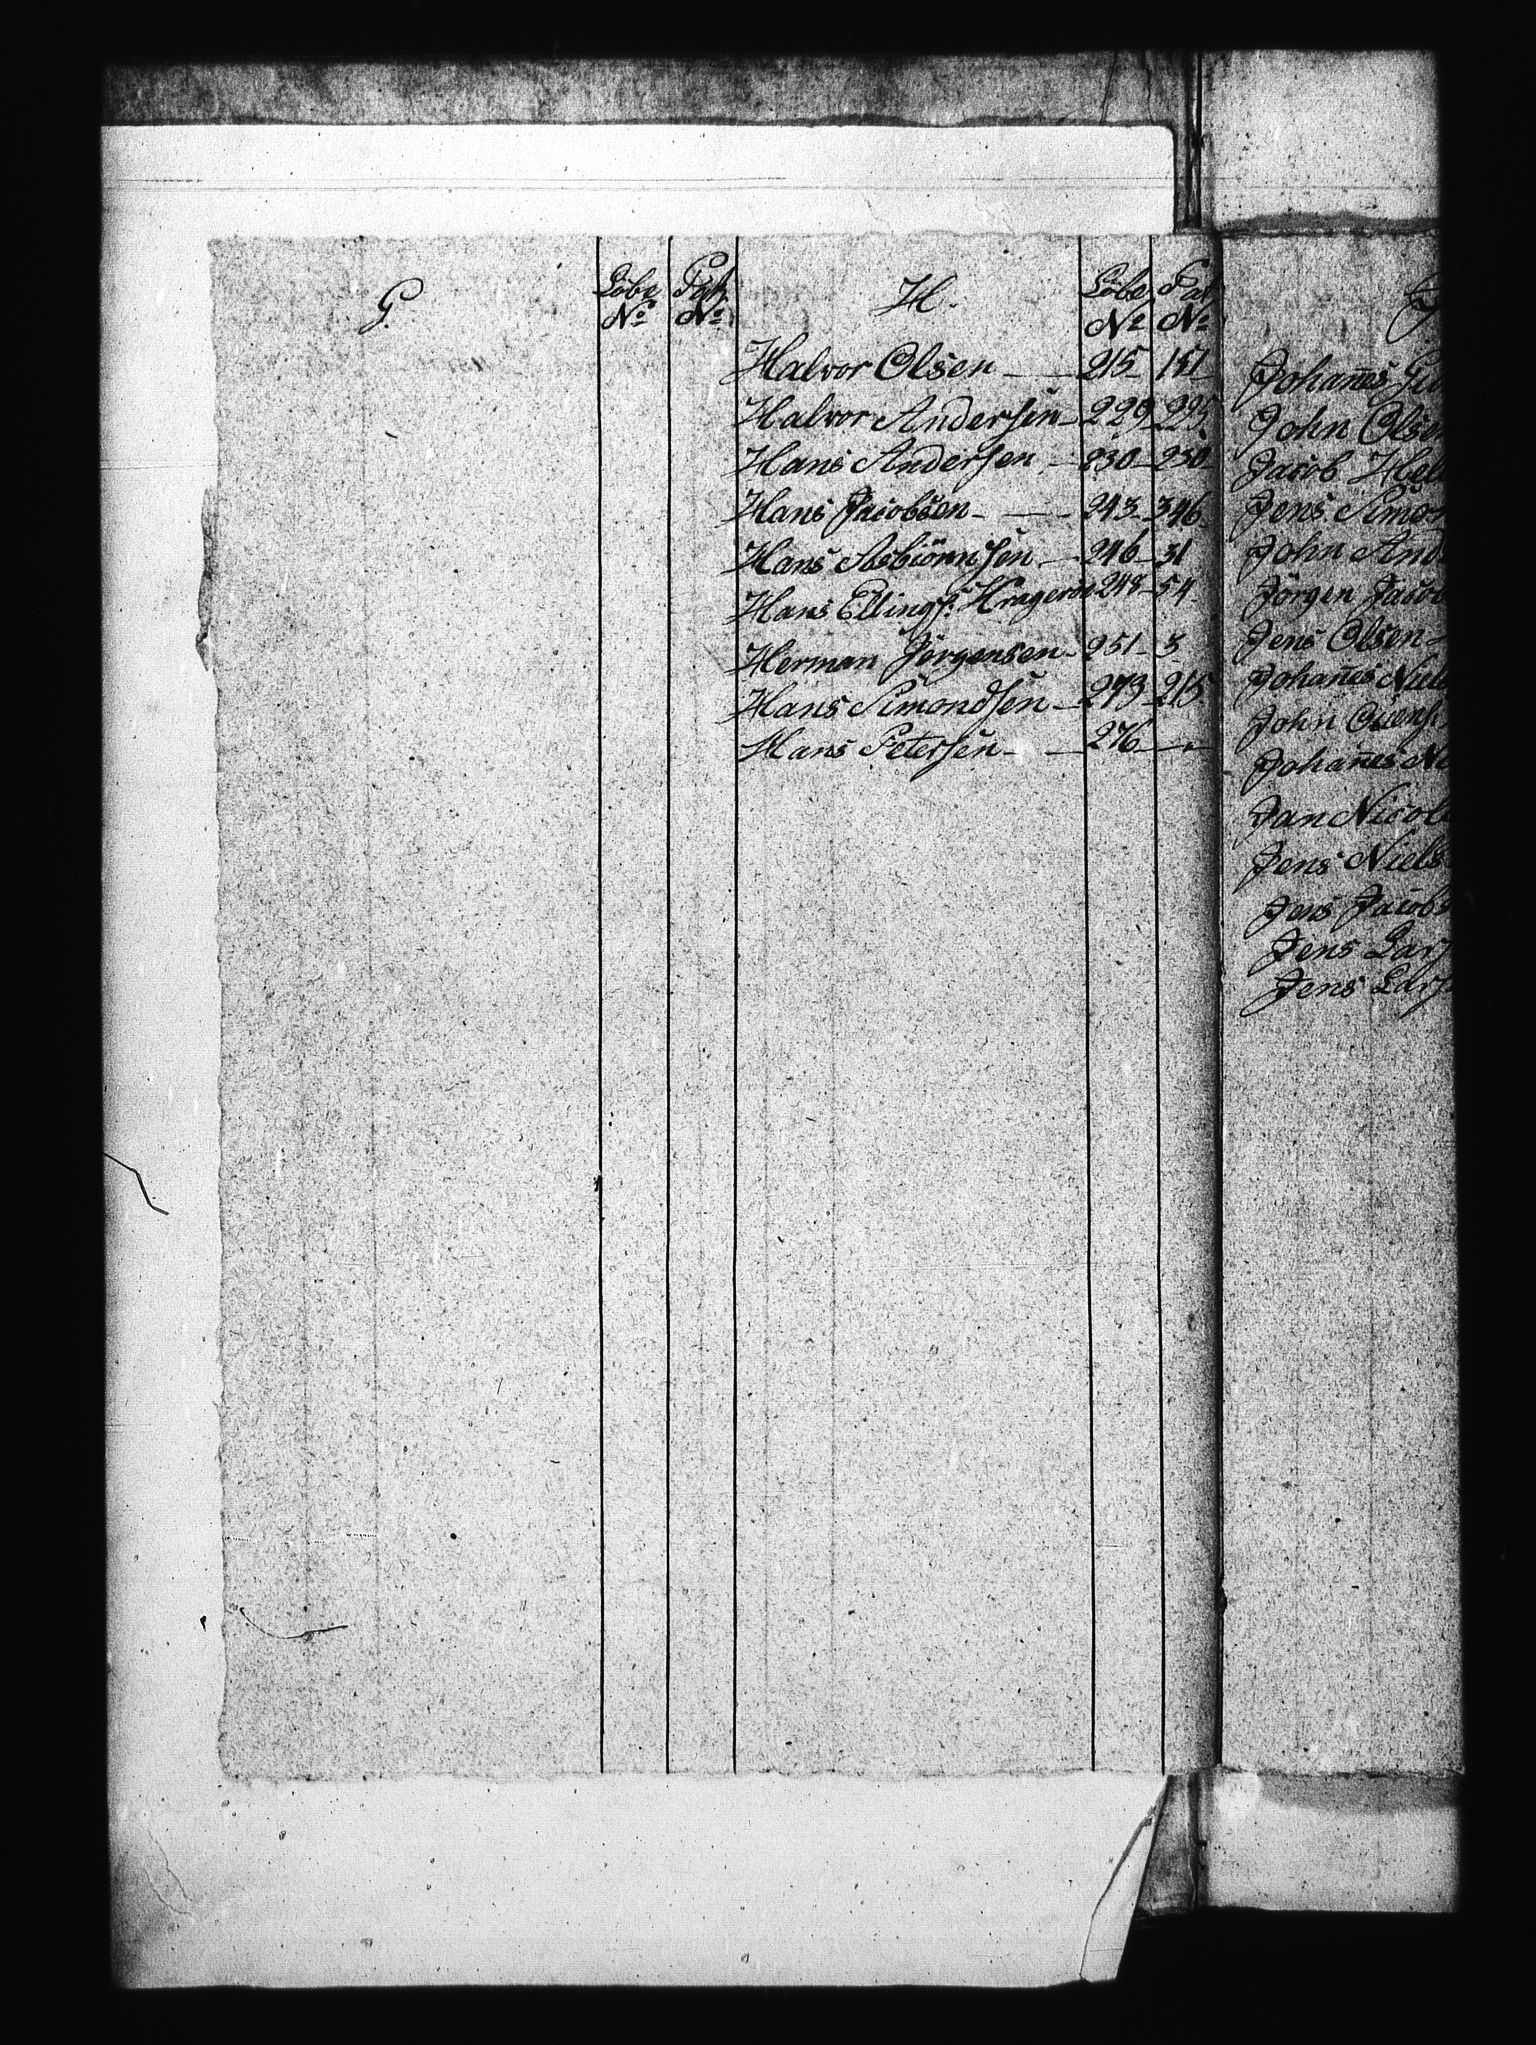 G.
Löbe No
Pat No
H.
Löbe No
Pat No
Halvor Olsen — 215 — 151
Halvor Andersen — 229 — 225
Hans Andersen — 230 — 230
Hans Jacobsen — 243 — 346
Hans Asbiörnsen — 246 — 31
Hans Ellings: Krageröe 248 — 54
Herman Jörgensen — 251 — 3
Hans Simondsen — 273 — 215
Hans Petersen — 276 —
J
Johan̄es
John Olsen
Jacob
Jens Simon
John And
Jörgen Jacob
Jens Olsen
Johan̄es Niel
John
Johan̄es
Jan Nicol
Jens Niels
Jens Jacobs
Jens Lars
Jens Lars